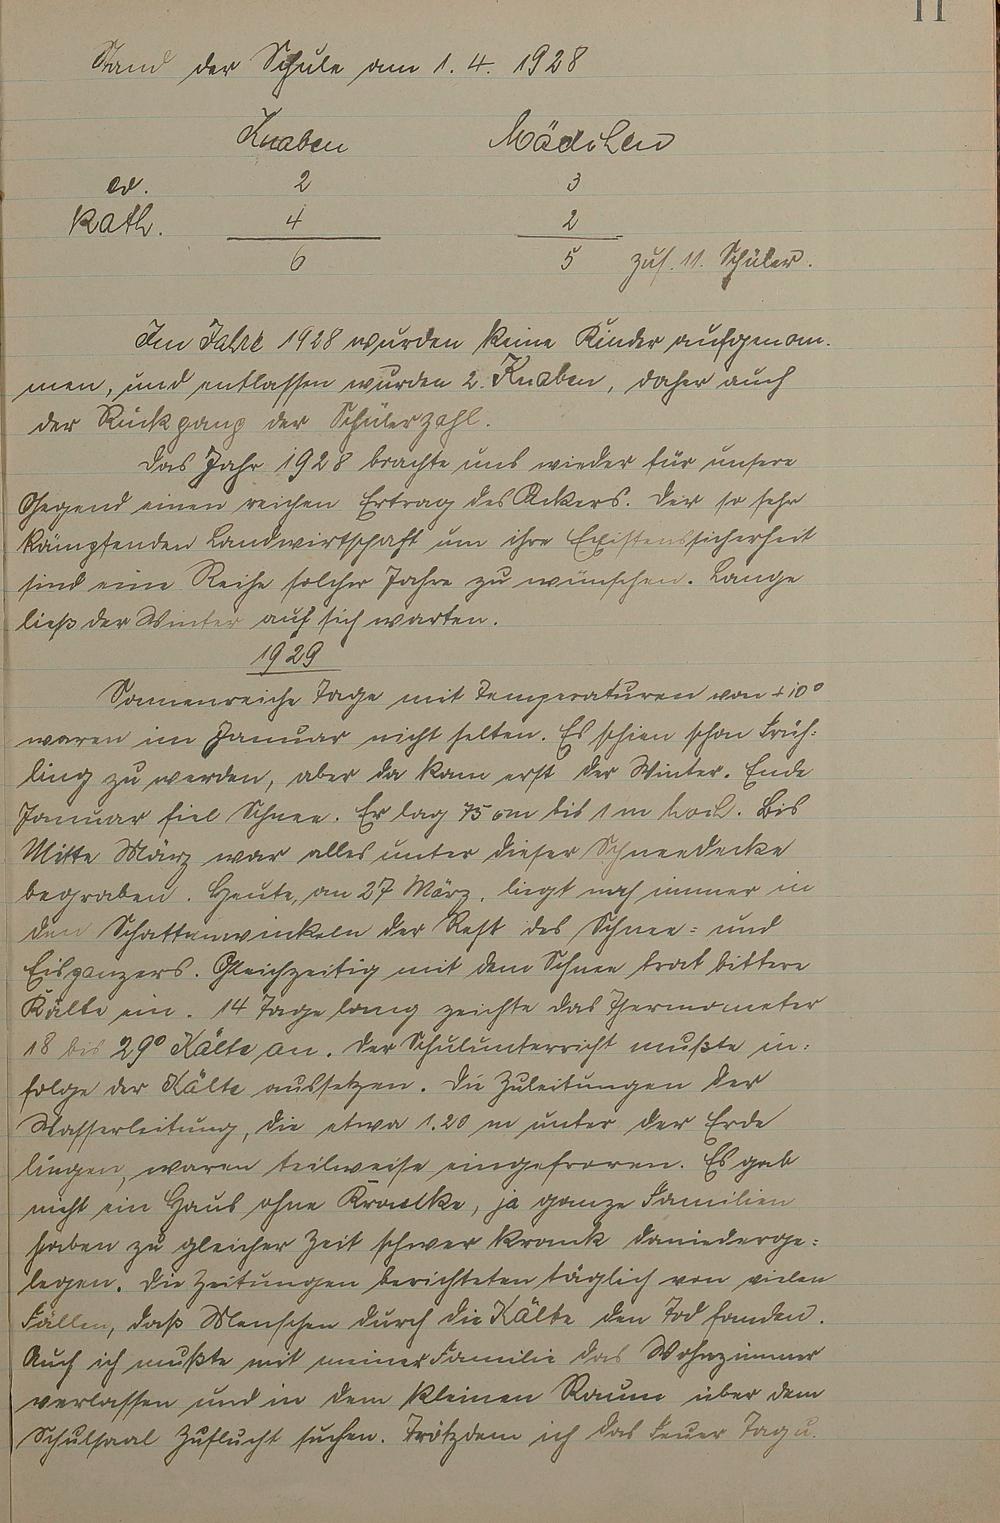 11
Stand der Schule am 1. 4. 1928
Knaben Mädchen
ev. 2 3
kath. 4 2
6 5 zus. 11. Schüler.
Im Jahre 1928 wurden keine Kinder aufgenom-
men, und entlassen wurden 2. Knaben, daher auch
der Rückgang der Schülerzahl.
Das Jahr 1928 brachte uns wieder für unsere
Gegend einen reichen Ertrag des Ackers. Der so sehr
kämpfenden Landwirtschaft um ihre Existenssicherheit
sind eine Reihe solcher Jahre zu wünschen. Lange
ließ der Winter auf sich warten.
1929
Sonnenreiche Tage mit Temperaturen von + 10°
waren im Januar nicht selten. Es schien schon Früh-
ling zu werden, aber da kam erst der Winter. Ende
Januar fiel Schnee. Er lag 75 cm bis 1 m hoch. Bis
Mitte März war alles unter dieser Schneedecke
begraben. Heute, am 27 März, liegt noch immer in
den Schattenwinkeln der Rest des Schnee- und
Eispanzers. Gleichzeitig mit dem Schnee trat bittere
Kälte ein. 14 Tage lang zeichte das Thermometer
18 bis 29° Kälte an. Der Schulunterricht mußte in-
folge der Kälte aussetzen. Die Zuleitungen der
Wasserleitung, die etwa 1.20 m unter der Erde
liegen, waren teilweise eingefroren. Es gab
nicht ein Haus ohne Kranke, ja ganze Familien
haben zu gleicher Zeit schwer krank daniederge-
legen. Die Zeitungen berichteten täglich von vielen
Fällen, daß Menschen durch die Kälte den Tod fanden.
Auch ich mußte mit meiner Familie das Wohnzimmer
verlassen und in dem kleinen Raum über dem
Schulsaal Zuflucht suchen. Trotzdem ich das Feuer Tag u.